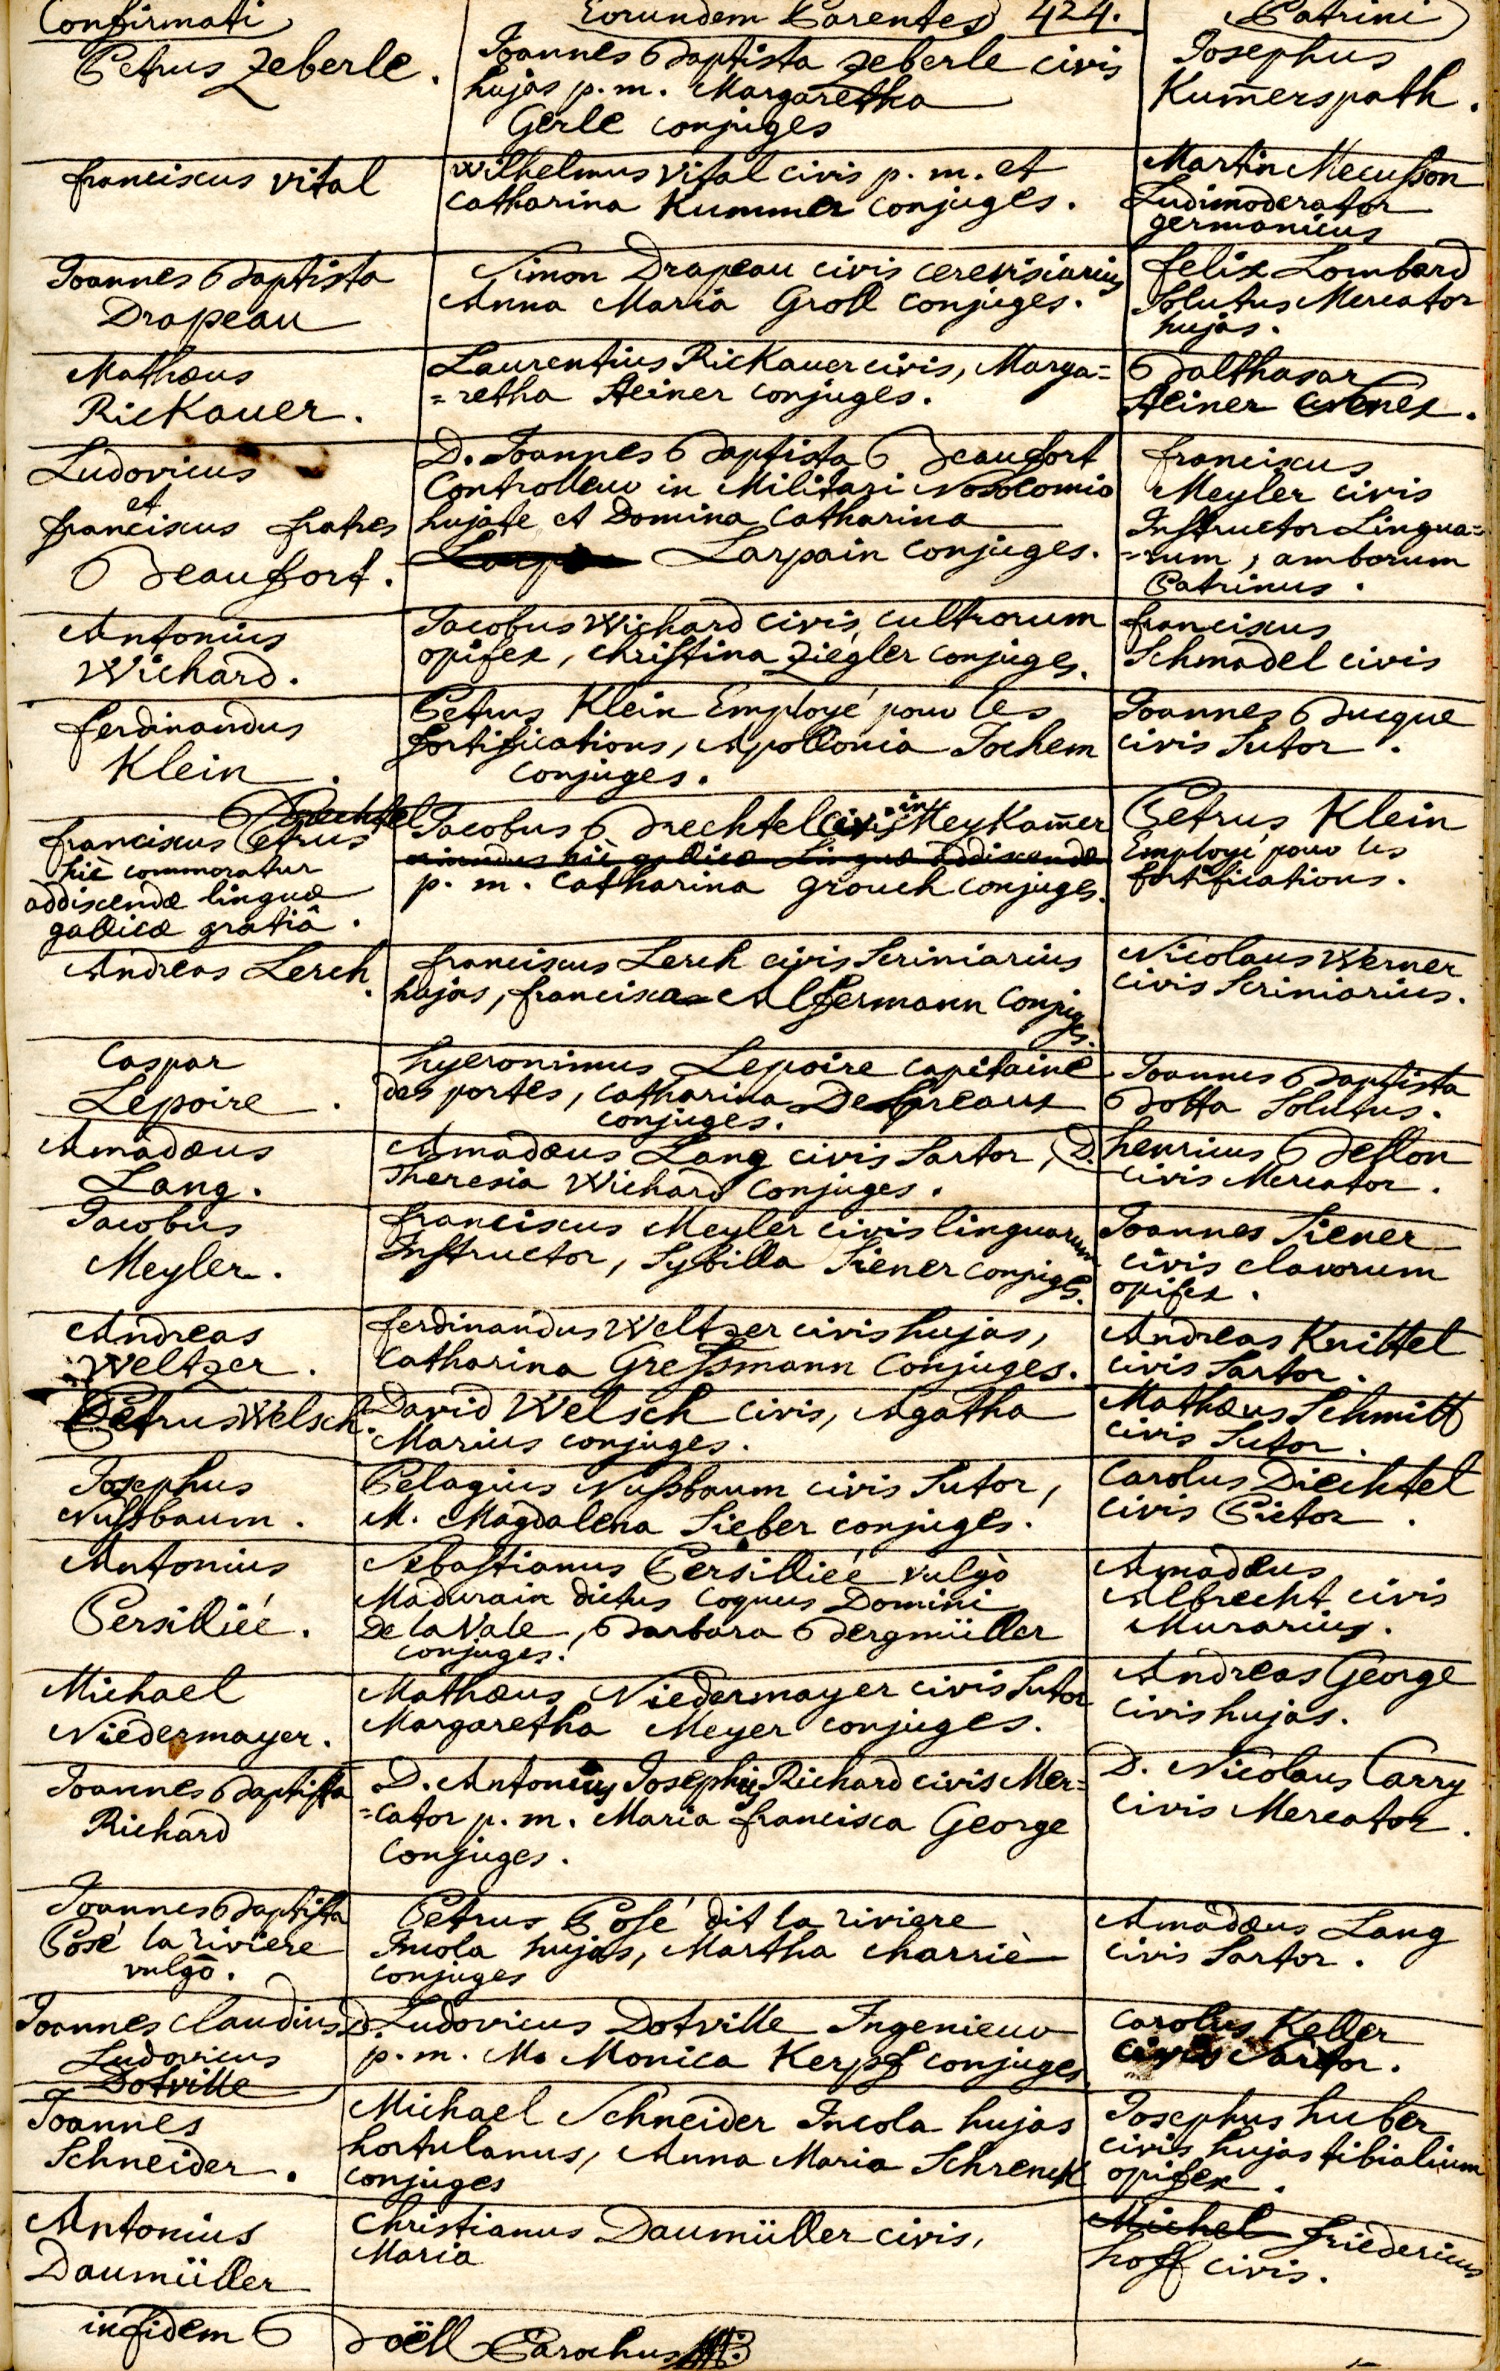 Confirmati
Eorundem Parentes 424.
Patrini
Petrus Zeberle.
Joannes Baptista Zeberle civis
hujas p. m. Margaretha
Gerle conjuges
Josephus
Kum̄erspath.
franciscus vital
Wilhelmus vital civis p. m. et
Catharina Kummer conjuges.
Martin Mecusson
Ludimoderator
germanicus
Joannes Baptista
Drapeau
Simon Drapeau civis cerevisiarius
Anna Maria Groll conjuges.
felix Lombard
Solutus Mercator
hujas.
Mathæus
Rickauer.
Laurentius Rickauer civis, Marga=
=retha Steiner conjuges.
Balthasar
Steiner
Ludovicus
et
franciscus fratres
Beaufort.
D. Joannes Baptista Beaufort
Controlleur in Militari Nosocomio
hujate et Domina Catharina
Larpain conjuges.
franciscus
Meyler civis
Instructor Lingua=
=rum, amborum
Patrinus.
Antonius
Wichard.
Jacobus Wichard civis cultrorum
opifex, christina Ziegler conjuges.
franciscus
Schmadel civis
ferdinandus
Klein.
Petrus Klein Employé pour les
fortifications, Apollonia Jochem
conjuges.
Joannes Bucque
civis Sutor.
Brechtel
franciscus Petrus
hic commoratur
addiscendæ linguæ
gallicæ gratiâ.
Jacobus Brechtel civis in MeyKam̄er
p. m. Catharina grouch conjuges.
Petrus Klein
Employé pour les
fortifications.
Andreas Lerch.
franciscus Lerch civis Scriniarius
hujas, francisca Alfermann conjuges.
Nicolaus Werner
civis Scriniarius.
Caspar
Lepoire.
hyeronimus Lepoire capitaine
des portes, catharina Despreaux
conjuges.
Joannes Baptista
Botta Solutus.
Amadæus
Lang.
Amadæus Lang civis Sartor,
Theresia Wichard conjuges.
D. henricus Bellon
civis Mercator.
Jacobus
Meyler.
franciscus Meyler civis linguarum
Instructor, Sybilla Siener conjuges.
Joannes Siener
civis clavorum
opifex.
Andreas
Weltzer.
ferdinandus Weltzer civis hujas,
Catharina Gressmann conjuges.
Andreas Knittel
civis Sartor.
Petrus Welsch.
David Welsch civis, Agatha
Marius conjuges.
Mathæus Schmitt
civis Sutor.
Josephus
Nussbaum.
Pelagius Nussbaum civis Sutor,
M. Magdalena Sieber conjuges.
Carolus Diechtel
civis Pictor.
Antonius
Persilliéé.
Sebastianus Persilliéé vulgò
Madurain dictus Coquus Domini
De la Vale, Barbara Bergmüller
conjuges.
Amadæus
Albrecht civis
Murarius.
Michael
Niedermayer.
Mathæus Niedermayer civis Sutor
Margaretha Meyer conjuges.
Andreas George
civis hujas.
Joannes Baptista
Richard
D. Antonius Josephus Richard civis Mer=
=cator p. m. Maria francisca George
conjuges.
D. Nicolaus Carry
civis Mercator.
Joannes Baptista
Posé la riviere
vulgò.
Petrus Posé dit la riviere
Incola hujas, Martha charriè
conjuges
Amadæus Lang
civis Sartor.
Joannes claudius
Ludovicus
Dotville
D. Ludovicus Dotville Ingenieur
p. m. Ma Monica Kerpf conjuges
Carolus Keller
civis Sartor.
Joannes
Schneider.
Michael Schneider Incola hujas
hortulanus, Anna Maria Schrenck
conjuges
Josephus huber
civis hujas tibialium
opifex.
Antonius
Daumüller
Christianus Daumüller civis,
Maria
Michel friedericus
hoff civis.
in fidem Boëll Parochus